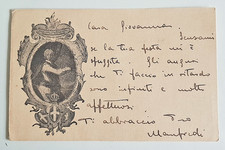 Cara Giovanna,
Scusami
se la tua festa mi è
sfuggita. Gli auguri
che Ti faccio in ritardo
sono infiniti e molto
affettuosi.
Ti abbraccio Tuo
Manfredi